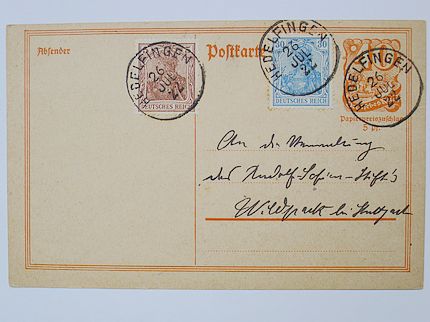 Absender
Postkarte
HEDELFINGEN
26
JUL
22
HEDELFINGEN
26
JUL
22
HEDELFINGEN
26
JUL
22
DEUTSCHES REICH
30
DEUTSCHES REICH
Papierpreiszuschlag
5 Pf.
An die Verwaltung
des Rudolf-Sophien-Stift's
Wildpark bei Stuttgart